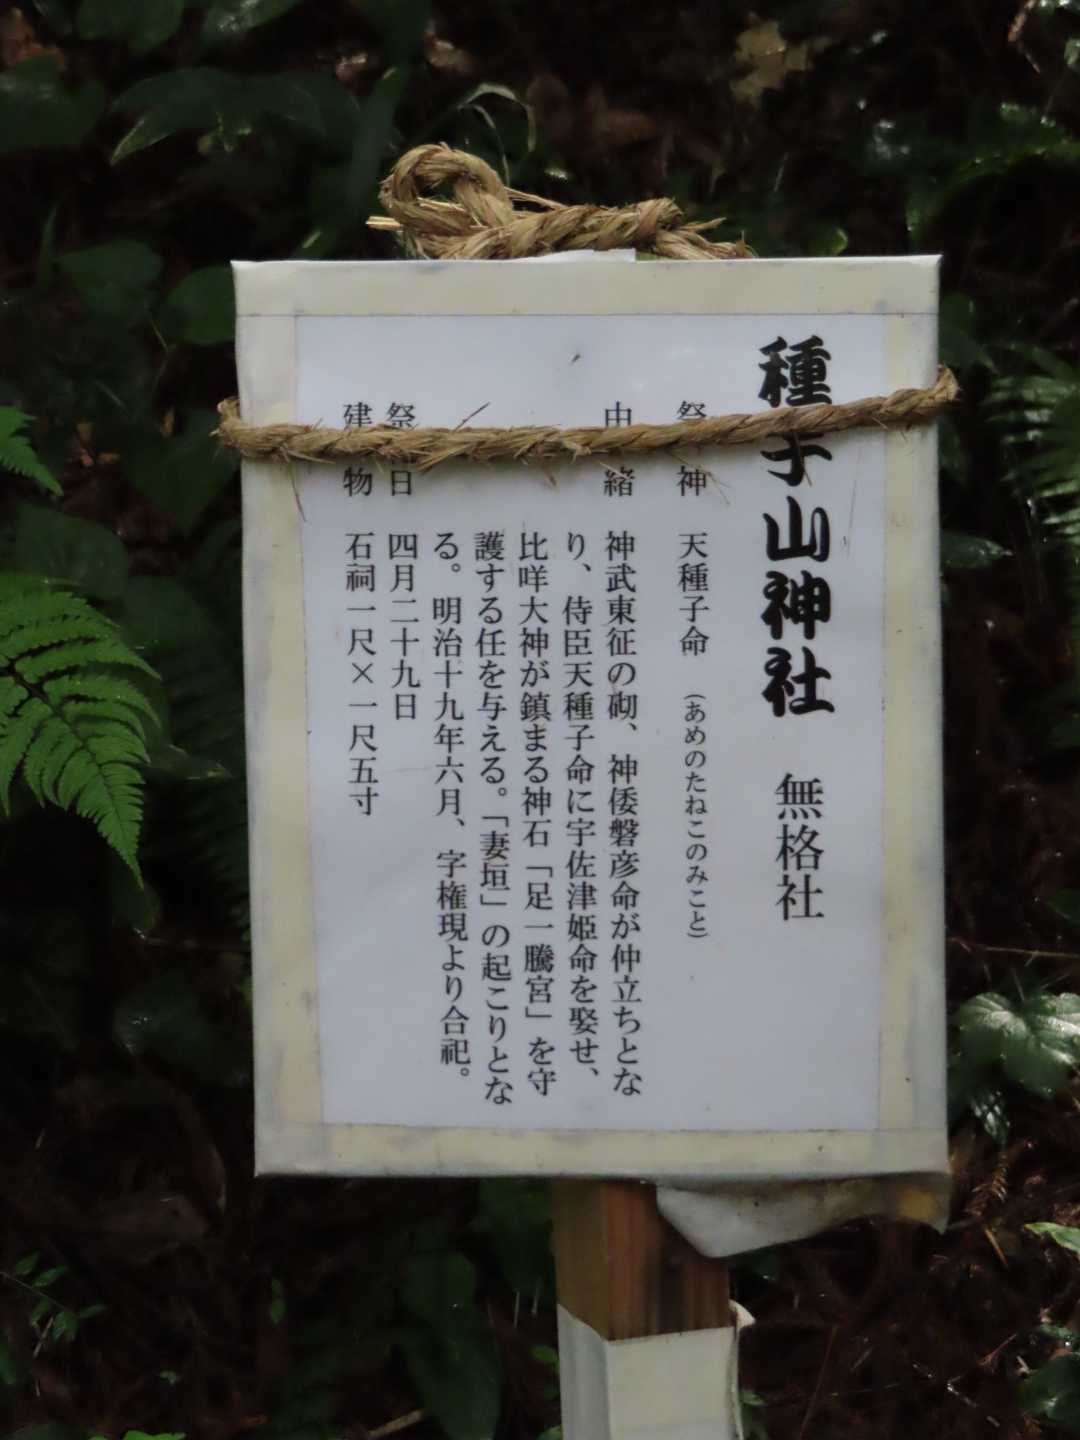 種子山神社 無格社
祭神 天種子命 (あめのたねこのみこと)
由緒 神武東征の砌、神倭磐彦命が仲立ちとな
り、侍臣天種子命に宇佐津姫命を娶せ、
比咩大神が鎮まる神石「足一騰宮」を守
護する任を与える。「妻垣」の起こりとな
る。明治十九年六月、字権現より合祀。
祭日 四月二十九日
建物 石祠一尺×一尺五寸